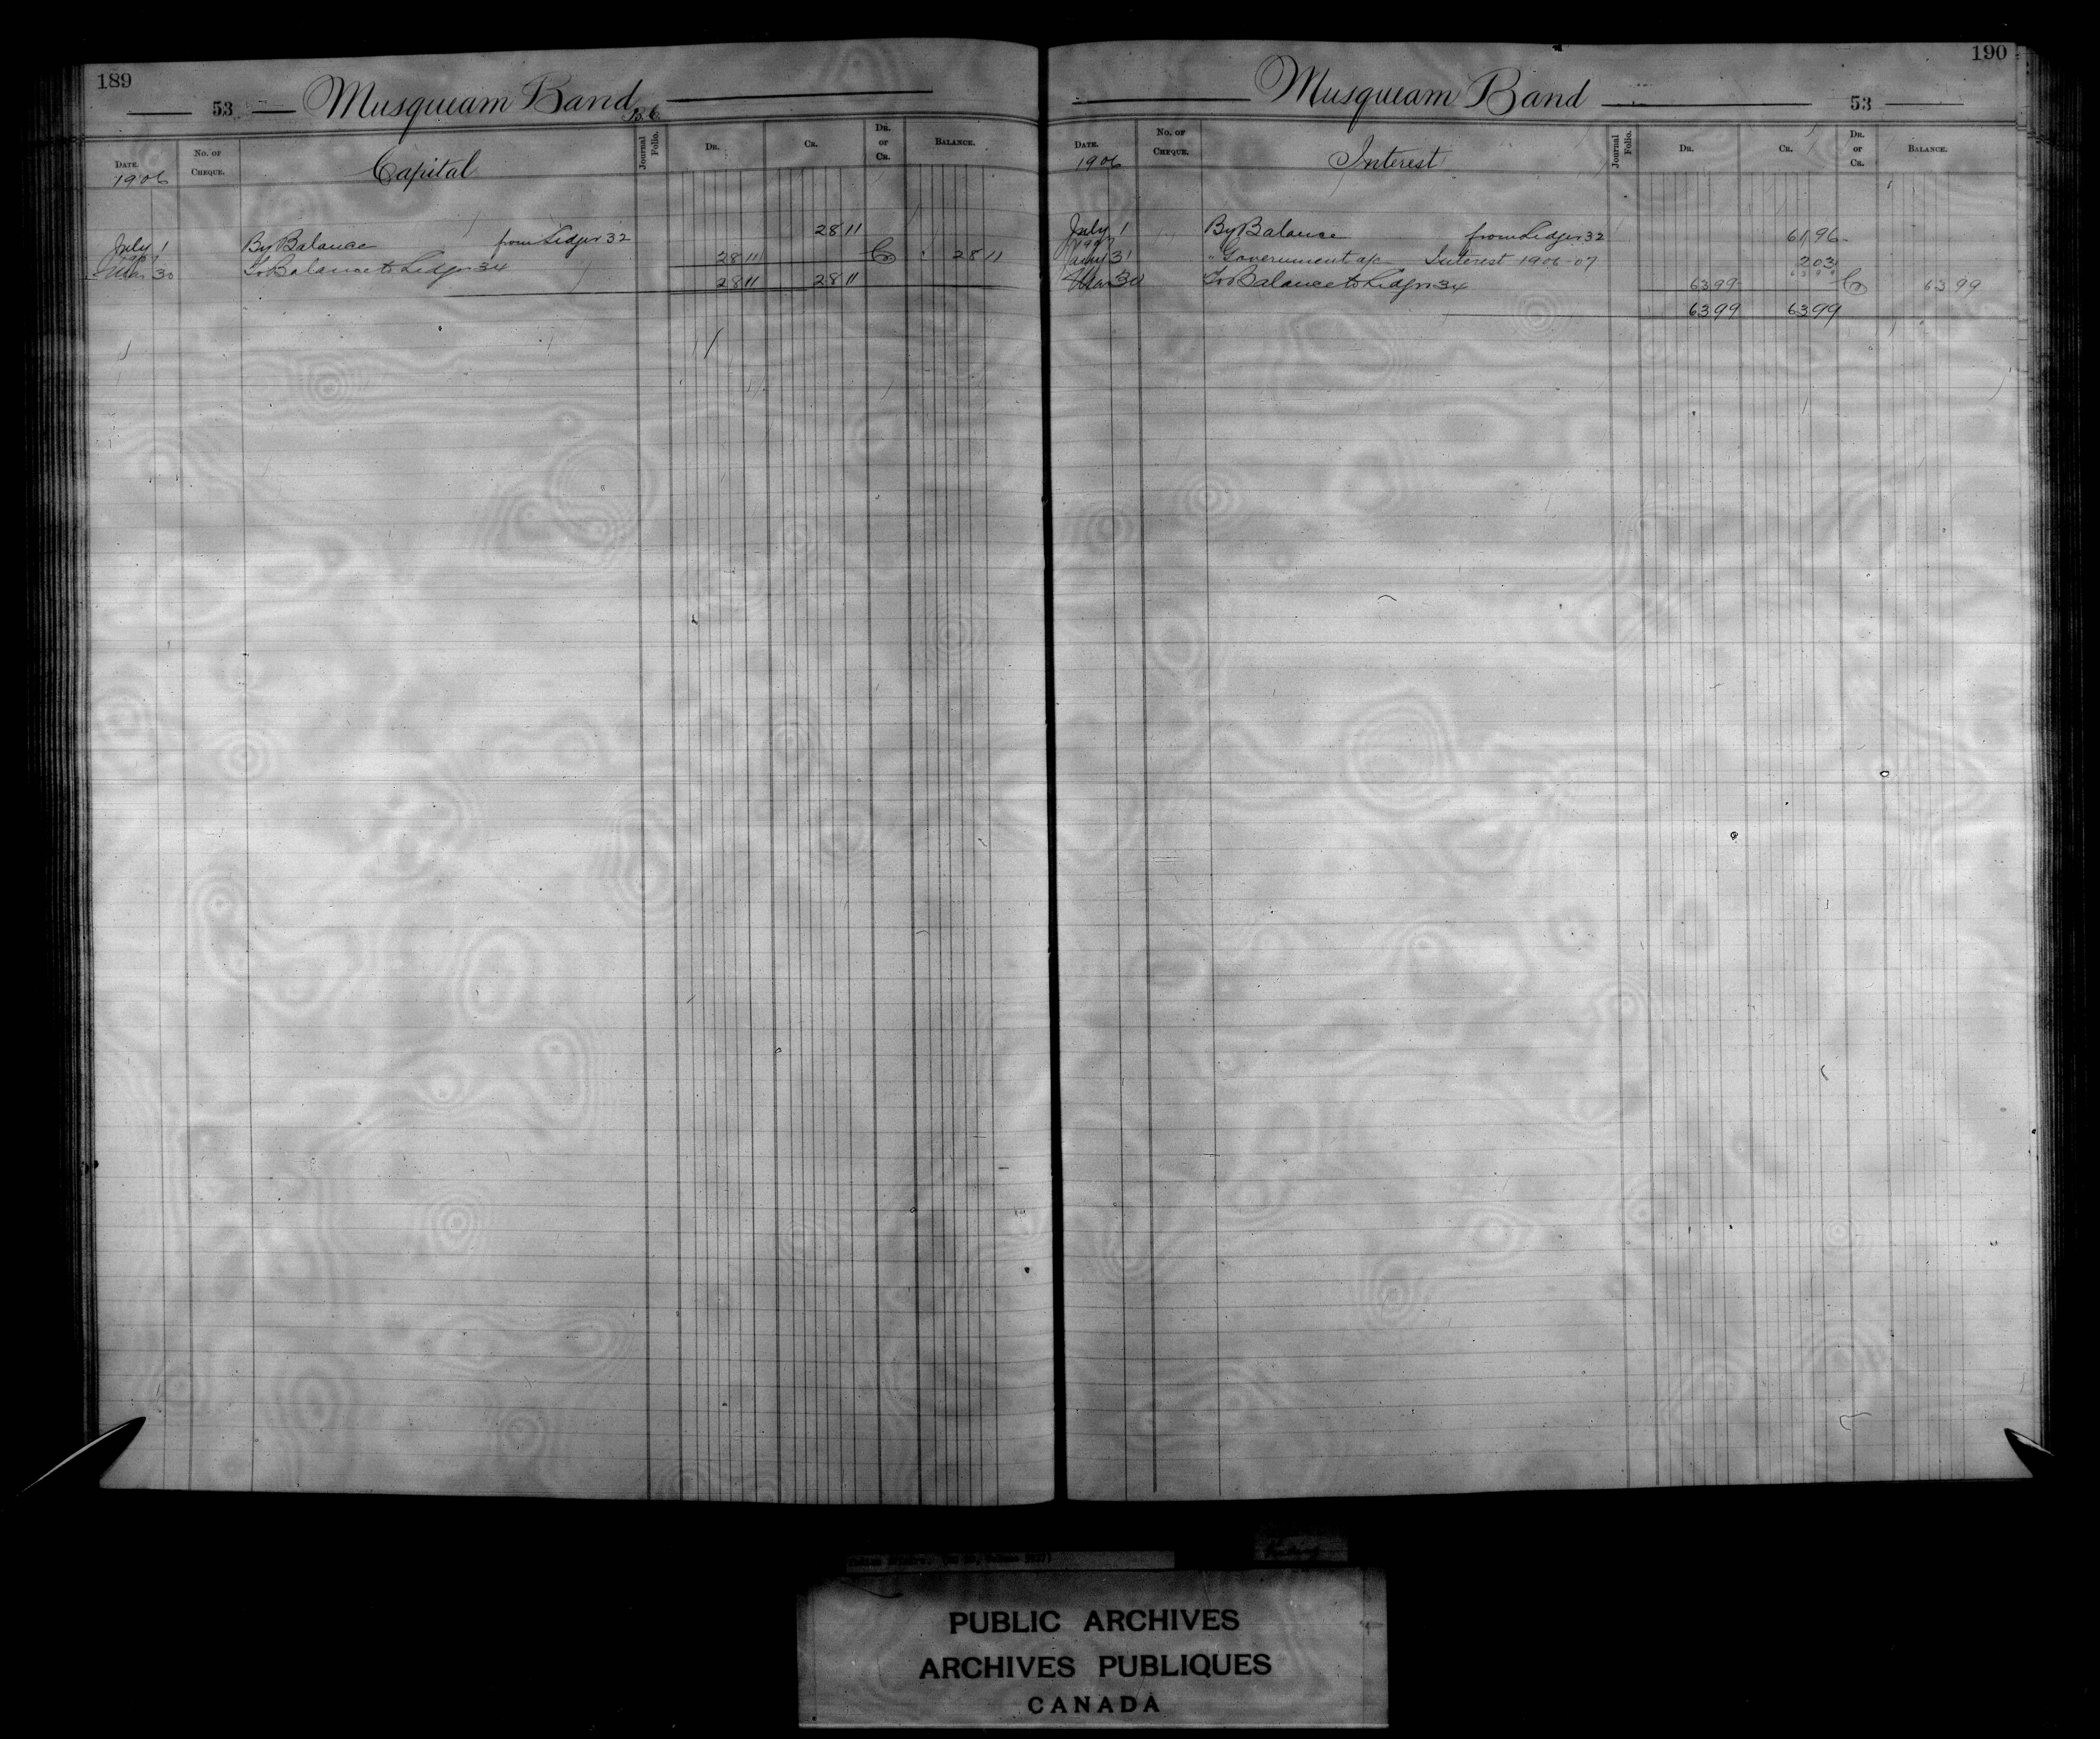 189
53 Musqueam Band B.C.
DATE. No. OF CHEQUE. Capital Journal Folio. DR. CR. DR. or CR. BALANCE.
1906
July 1 By Balance from Ledger 32 28 11
1907
Mar 30 To Balance to Ledger 34 28 11 Cr 28 11
28 11 28 11
190
Musqueam Band 53
DATE. No. OF CHEQUE. Interest Journal Folio. DR. CR. DR. or CR. BALANCE.
1906
July 1 By Balance from Ledger 32 61 96
1907
Jany 31 " Government a/c Interest 1906-07 2 03
Mar 30 To Balance to Ledger 34 63 99 63 99 Cr 63 99
63 99 63 99
PUBLIC ARCHIVES
ARCHIVES PUBLIQUES
CANADA